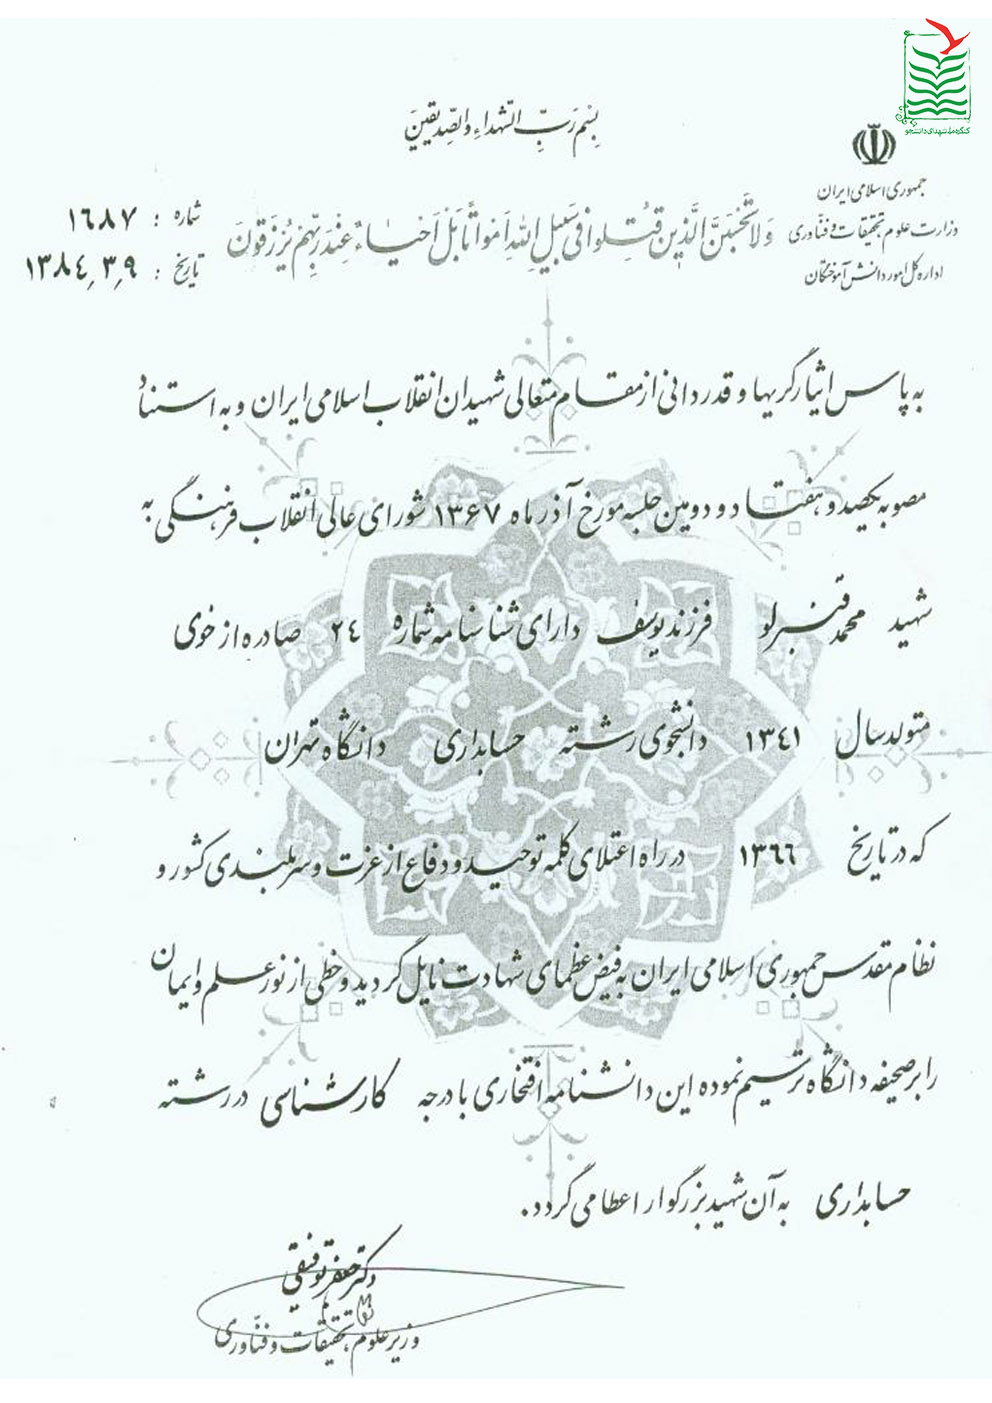 کنگره ملی شهدای دانشجو
بِسْمِ رَبِّ الشّهداءِ والصِّدیقینَ
جمهوری اسلامی ایران
وزارت علوم، تحقیقات و فنّاوری
اداره کل امور دانش آموختگان
وَلا تَحْسَبَنَّ الَّذینَ قُتِلوا فی سَبیلِ اللهِ اَمْواتاً بَلْ اَحْیاءٌ عِنْدَ رَبِّهِمْ یُرْزَقُونَ
شماره : ١٦٨٧
تاریخ : ١٣٨٤٫٣٫٩
به پاس ایثارگریها و قدردانی از مقام متعالی شهیدان انقلاب اسلامی ایران و به استناد
مصوبه یکصد و هفتاد و دومین جلسه مورخ آذر ماه ۱۳۶۷ شورای عالی انقلاب فرهنگی به
شهید محمد قنبرلو فرزند یوسف دارای شناسنامه شماره ٢٤ صادره از خوی
متولد سال ١٣٤١ دانشجوی رشته حسابداری دانشگاه تهران
که در تاریخ ١٣٦٦ در راه اعتلای کلمه توحید و دفاع از عزت و سربلندی کشور و
نظام مقدس جمهوری اسلامی ایران به فیض عظمای شهادت نایل گردید و حظی از نور علم و ایمان
را بر صحیفه دانشگاه ترسیم نموده این دانشنامه افتخاری با درجه کارشناسی در رشته
حسابداری به آن شهید بزرگوار اعطا می گردد.
دکتر جعفر توفیقی
وزیر علوم، تحقیقات و فنّاوری